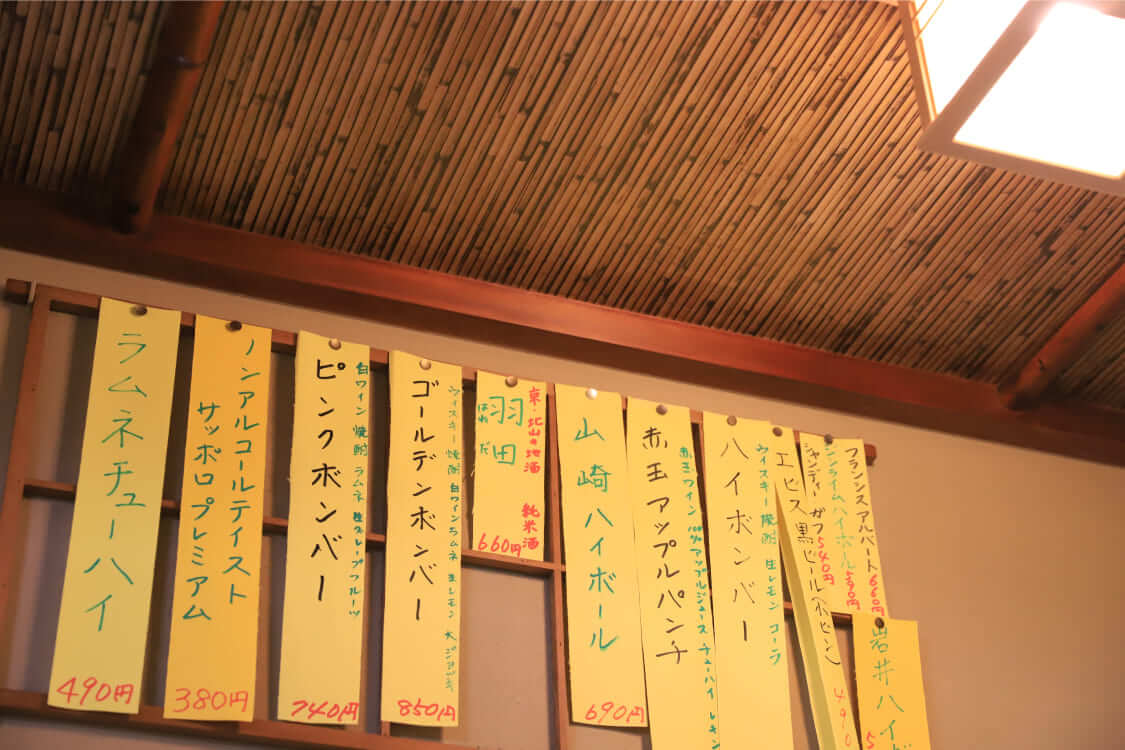 ラムネチューハイ
490円
ノンアルコールテイスト
サッポロプレミアム
380円
白ワイン 焼酎 ラムネ 生グレープフルーツ
ピンクボンバー
740円
ウイスキー 焼酎 白ワイン ラムネ 生レモン 大ジョッキ
ゴールデンボンバー
850円
東・北山の地酒 純米酒
羽田
はねだ
660円
山崎ハイボール
690円
赤玉ワイン 100%アップルジュース チューハイ レモン
赤玉アップルパンチ
ウイスキー 焼酎 生レモン コーラ
ハイボンバー
エビス黒ビール(小ビン)
490
フランシスアルバート 660円
ジンライムハイボール 590円
シャンディーガフ 540円
岩井ハイボ
5